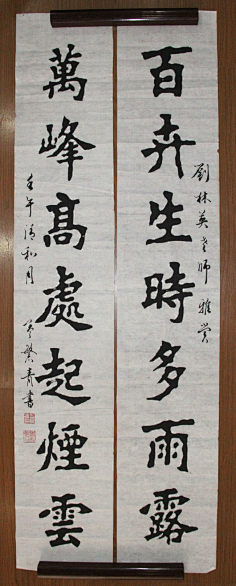 百卉生時多雨露
劉林英老師雅賞
萬峰高處起煙雲
壬午清和月
繁青書